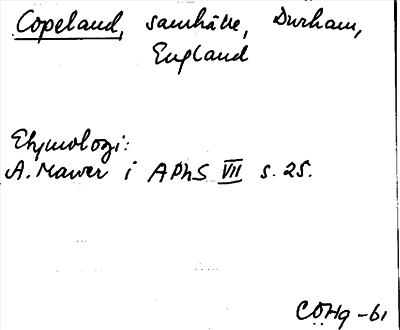 Copeland, samhälle, Durham,
England
Etymologi:
A. Mawer i APhS VII s. 25.
CÖHg -61